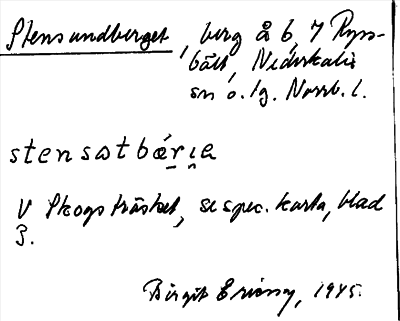 Stensundberget, berg å b, 7 Ryss-
bält, Nederkalix
sn o. lg. Norrb. l.
stensɷtbǽri̯a
V Skogsträsket, se spec. karta, blad
3.
Birgit Ericson, 1945.